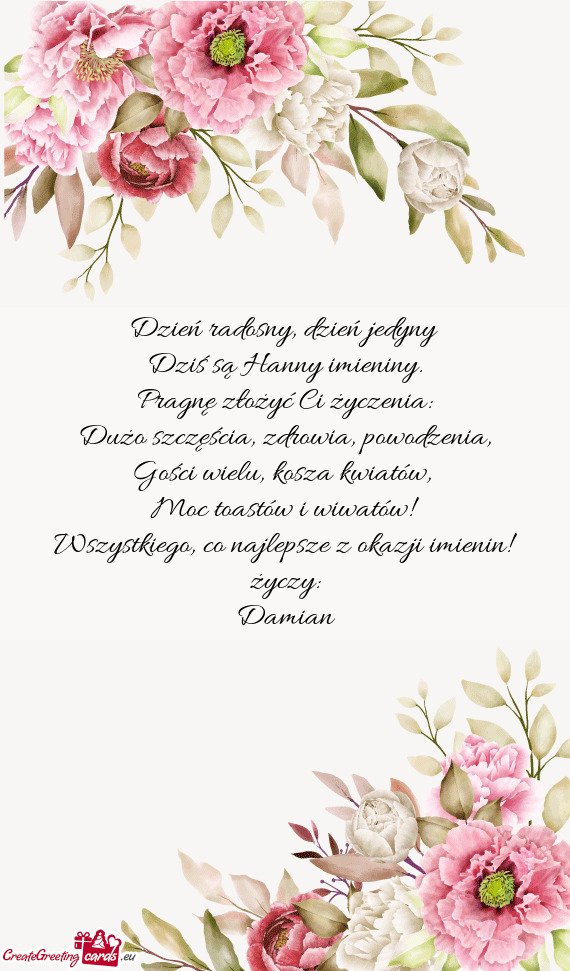 Dzień radosny, dzień jedyny
Dziś są Hanny imieniny.
Pragnę złożyć Ci życzenia:
Dużo szczęścia, zdrowia, powodzenia,
Gości wielu, kosza kwiatów,
Moc toastów i wiwatów!
Wszystkiego, co najlepsze z okazji imienin!
życzy:
Damian
CreateGreeting cards .eu